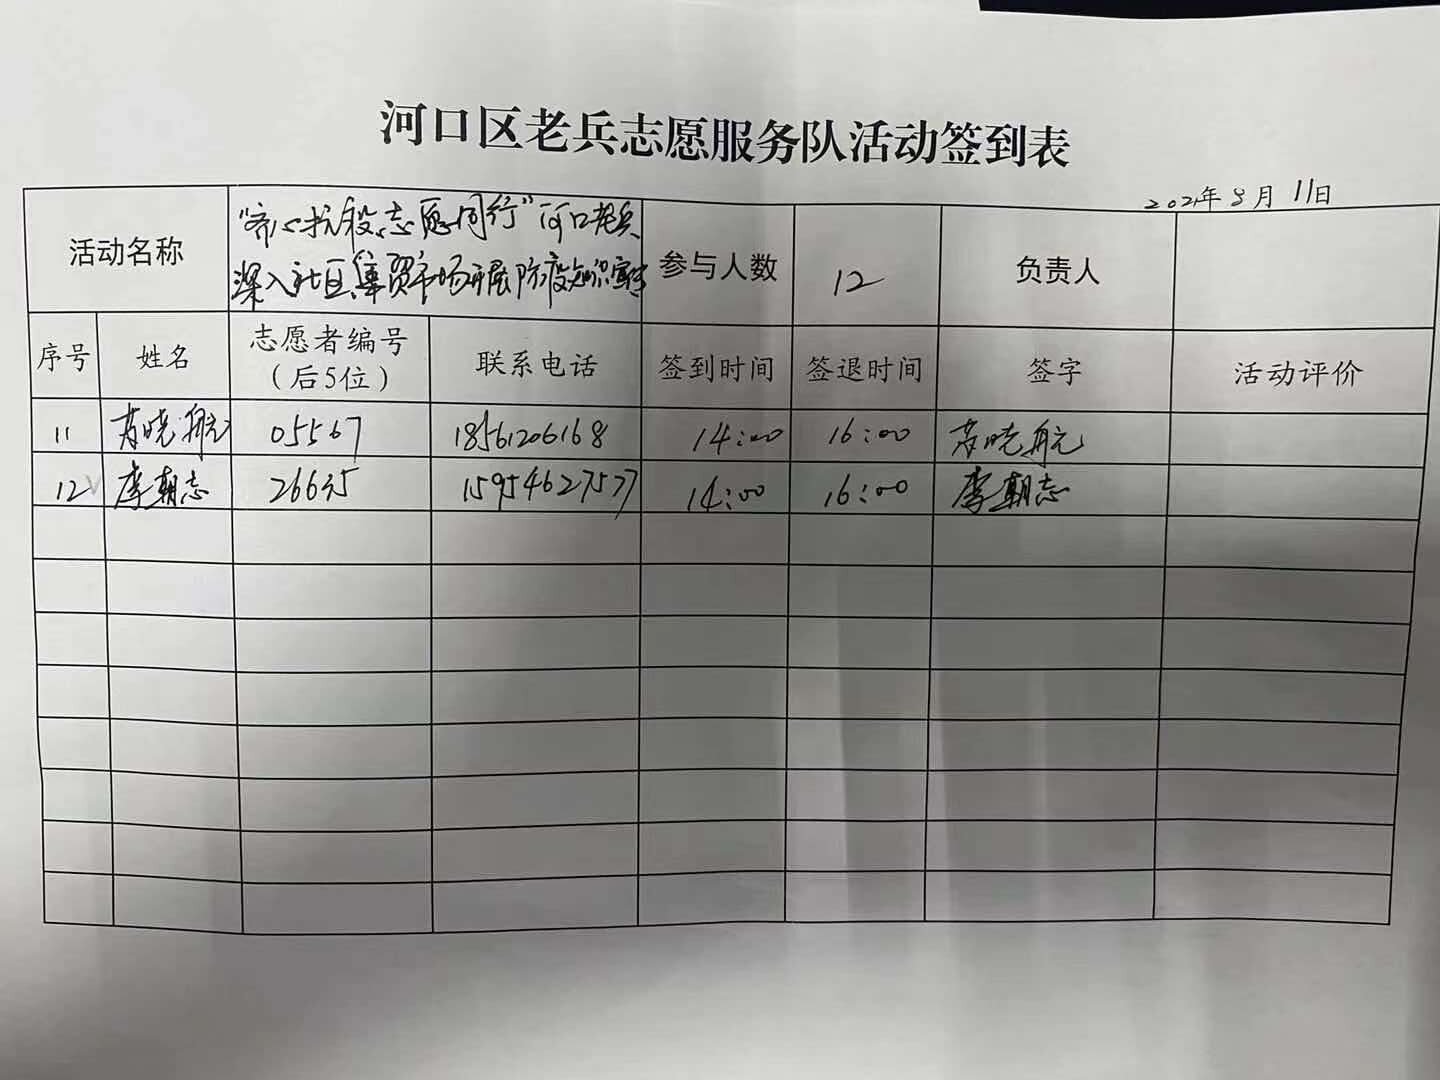 河口区老兵志愿服务队活动签到表
2021年8月11日
活动名称
"齐心抗疫,志愿同行"河口老兵
深入社区、集贸市场开展防疫知识宣传
参与人数
12
负责人
序号
姓名
志愿者编号
（后5位）
联系电话
签到时间
签退时间
签字
活动评价
11 晓航 05567 18561206168 14:00 16:00 晓航
12 李朝志 26635 15954627577 14:00 16:00 李朝志